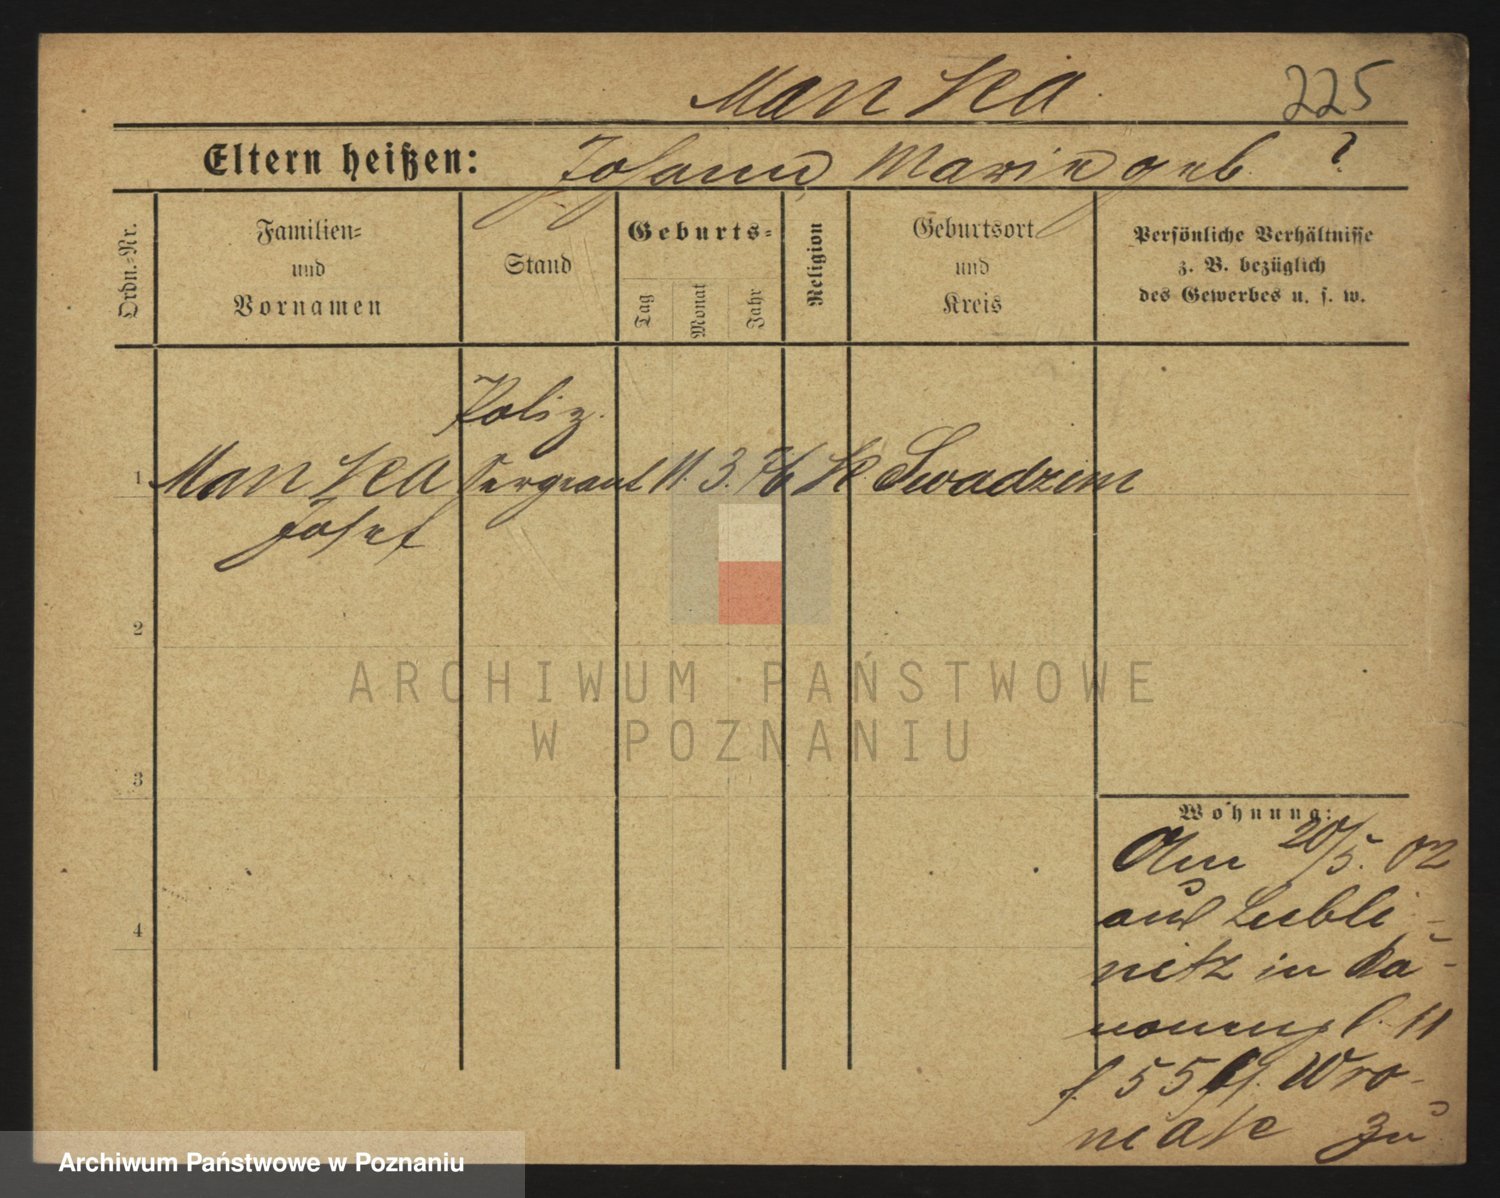 Manska 225
Eltern heißen: Johann Marie geb. ?
Ordn.-Nr.
Familien-
und
Vornamen
Stand
Geburts-
Tag
Monat
Jahr
Religion
Geburtsort
und
Kreis
Persönliche Verhältnisse
z. B. bezüglich
des Gewerbes u. s. w.
Poliz.
1 Manska Sergeant 11. 3. 76 K. Swadzim
Josef
2
ARCHIWUM PAŃSTWOWE
W POZNANIU
3
Wohnung:
Am 20/5. 02
aus Lubli-
nitz in Ka-
nonenpl. 11
f. 55
Wro-
niak zu
4
Archiwum Państwowe w Poznaniu